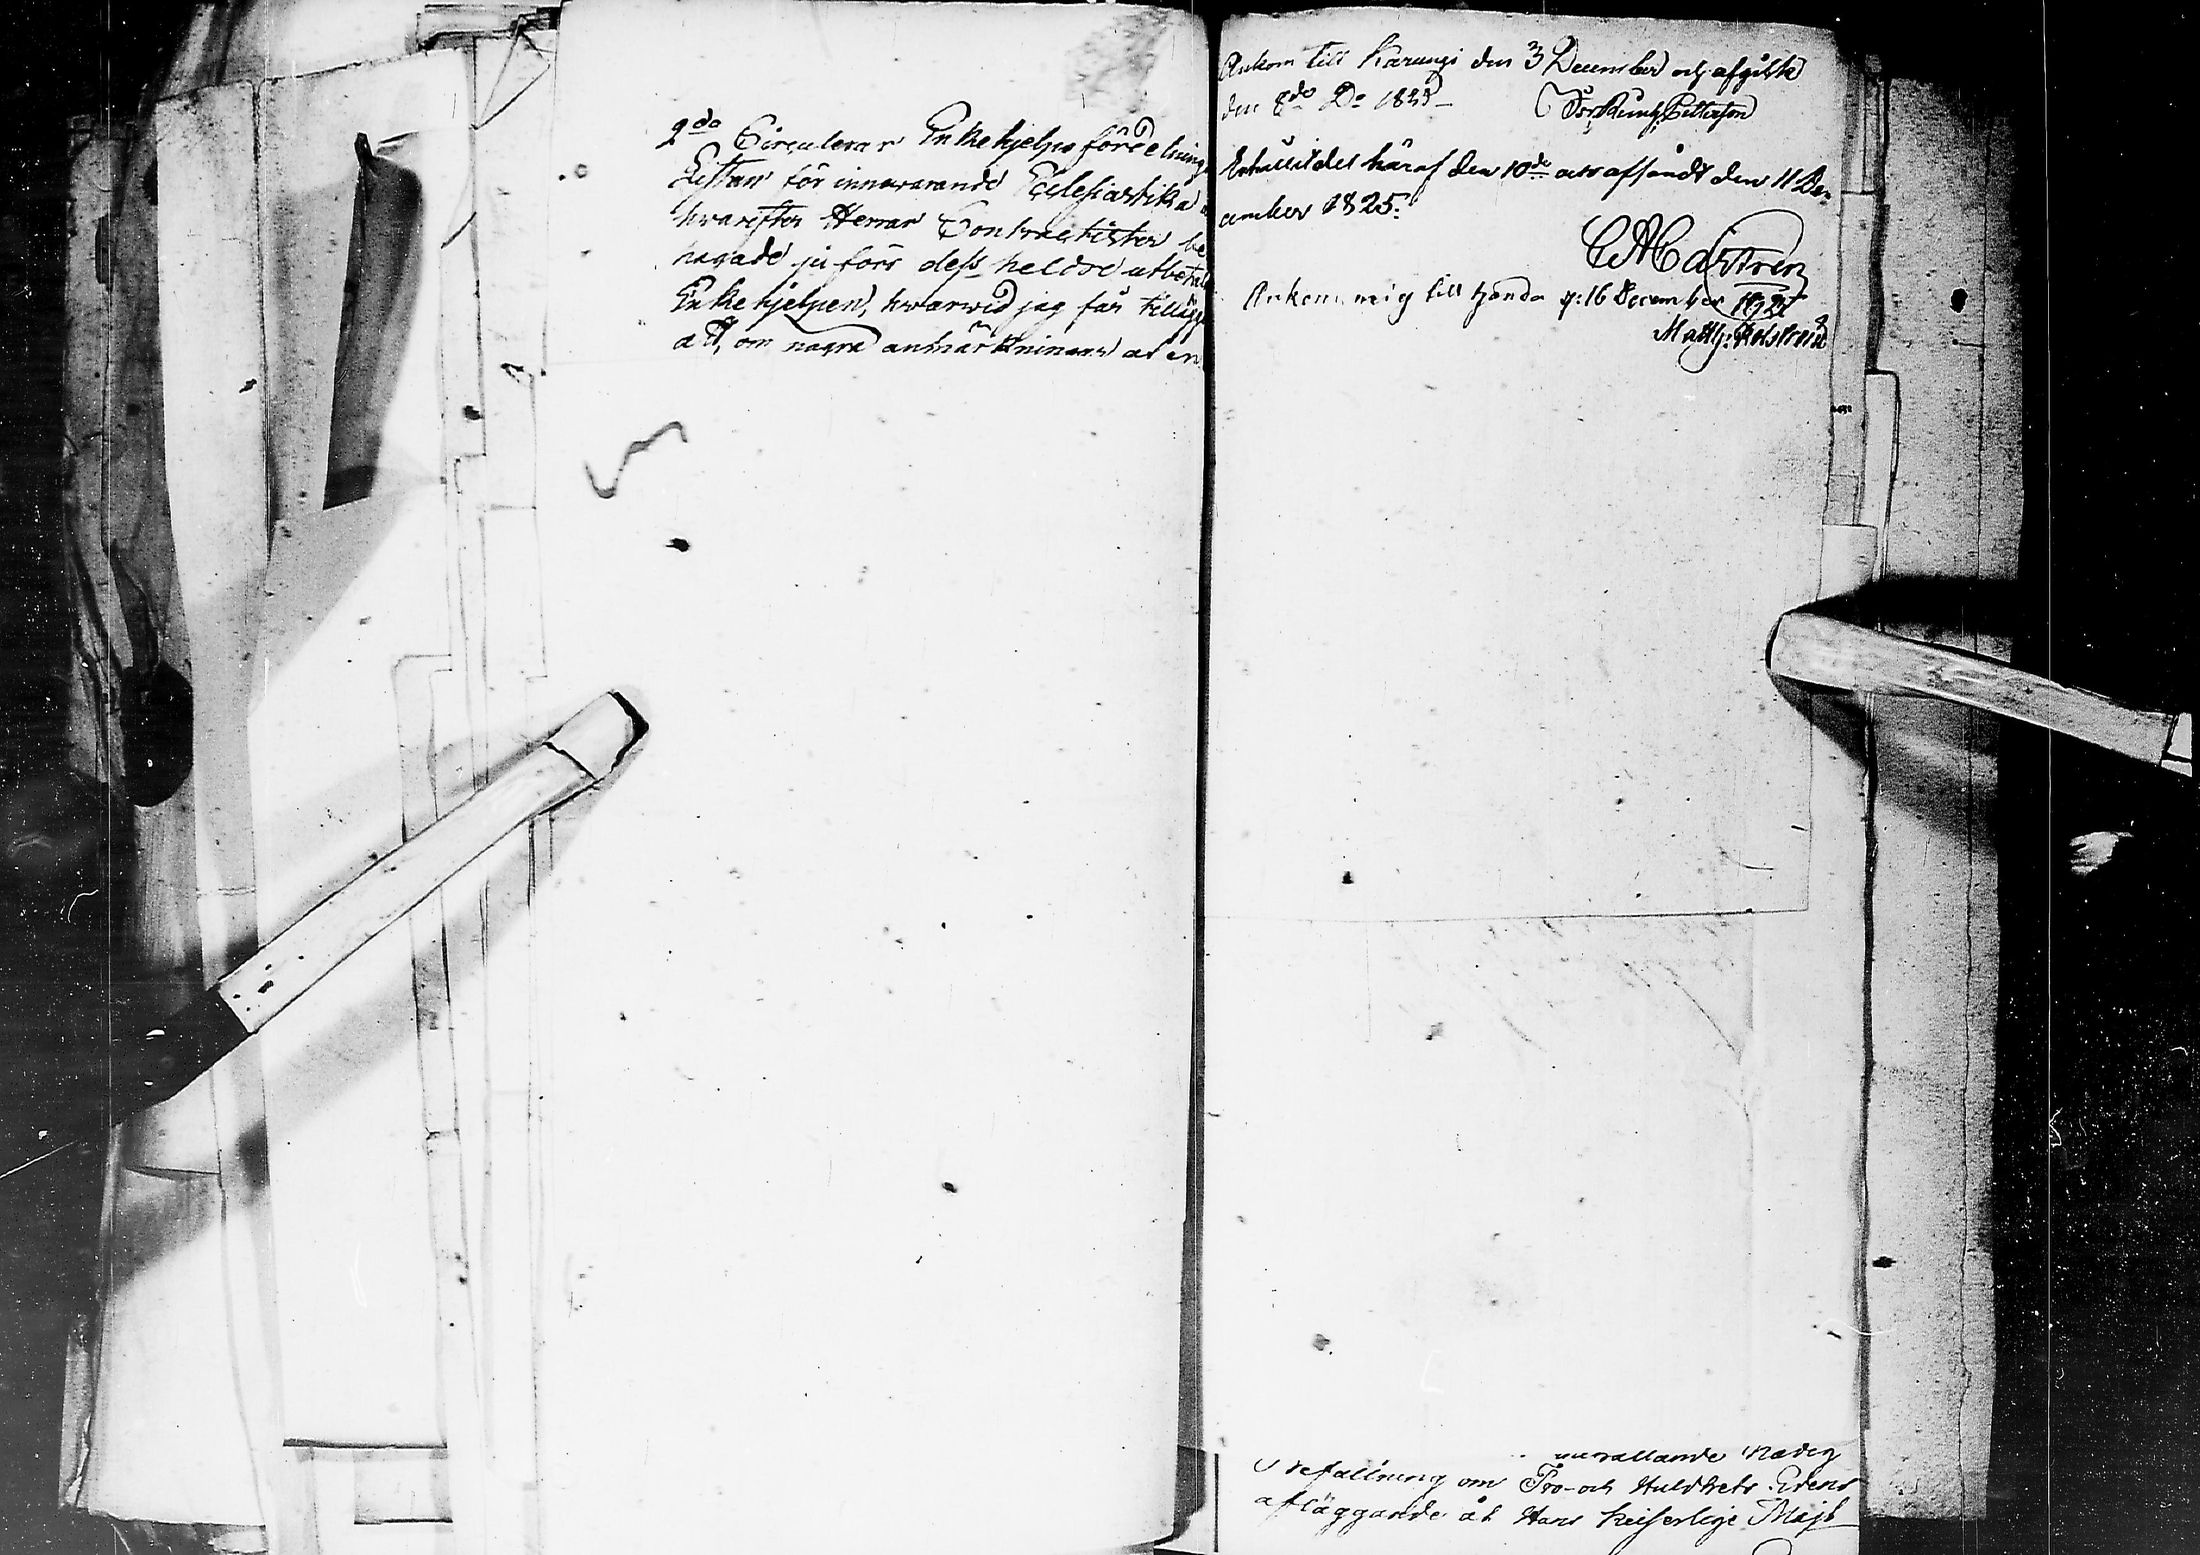 2do Circulerar Enkehjelps fördelnings
Listan för innevarande Ecclesiastika
hvarefter Herrar Contractister be
hagade ju förr dess heldre utbetal
Enkehjelpen, hvarwid jag får tillägg
at, om några anmärkningar at en
Ankom till Karungi den 3 December och afgick
den 8de Do 1825
Erhållit del häraf den 10de och afsändt den 11 De-
cember 1825.
Castren
Ankom mig till handa d: 16 December 1825
Matth:
nådig
befallning om Tro- och Huldhets Edens
afläggande åt Hans Keiserlige Majt